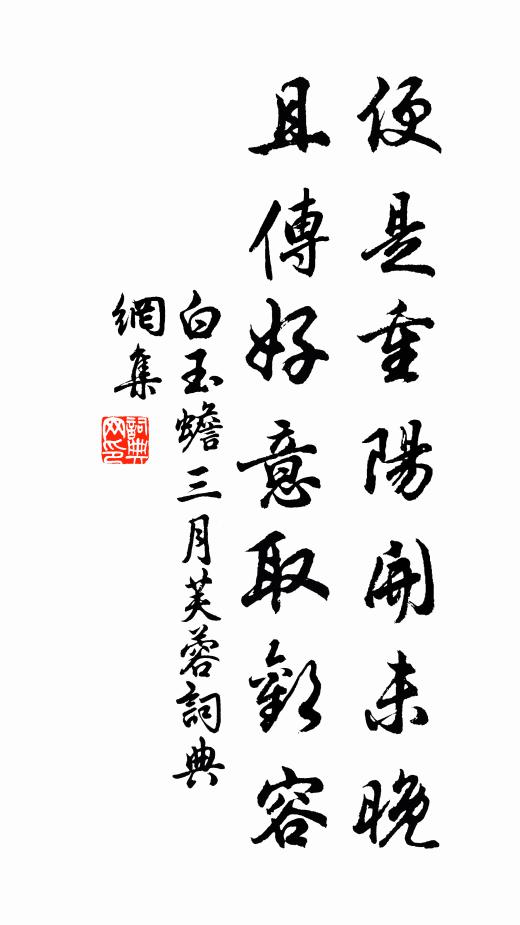 便是重陽開未晚
且傳好意取歡容
白玉蟾三月芙蓉詞典
網集
詞典
网印